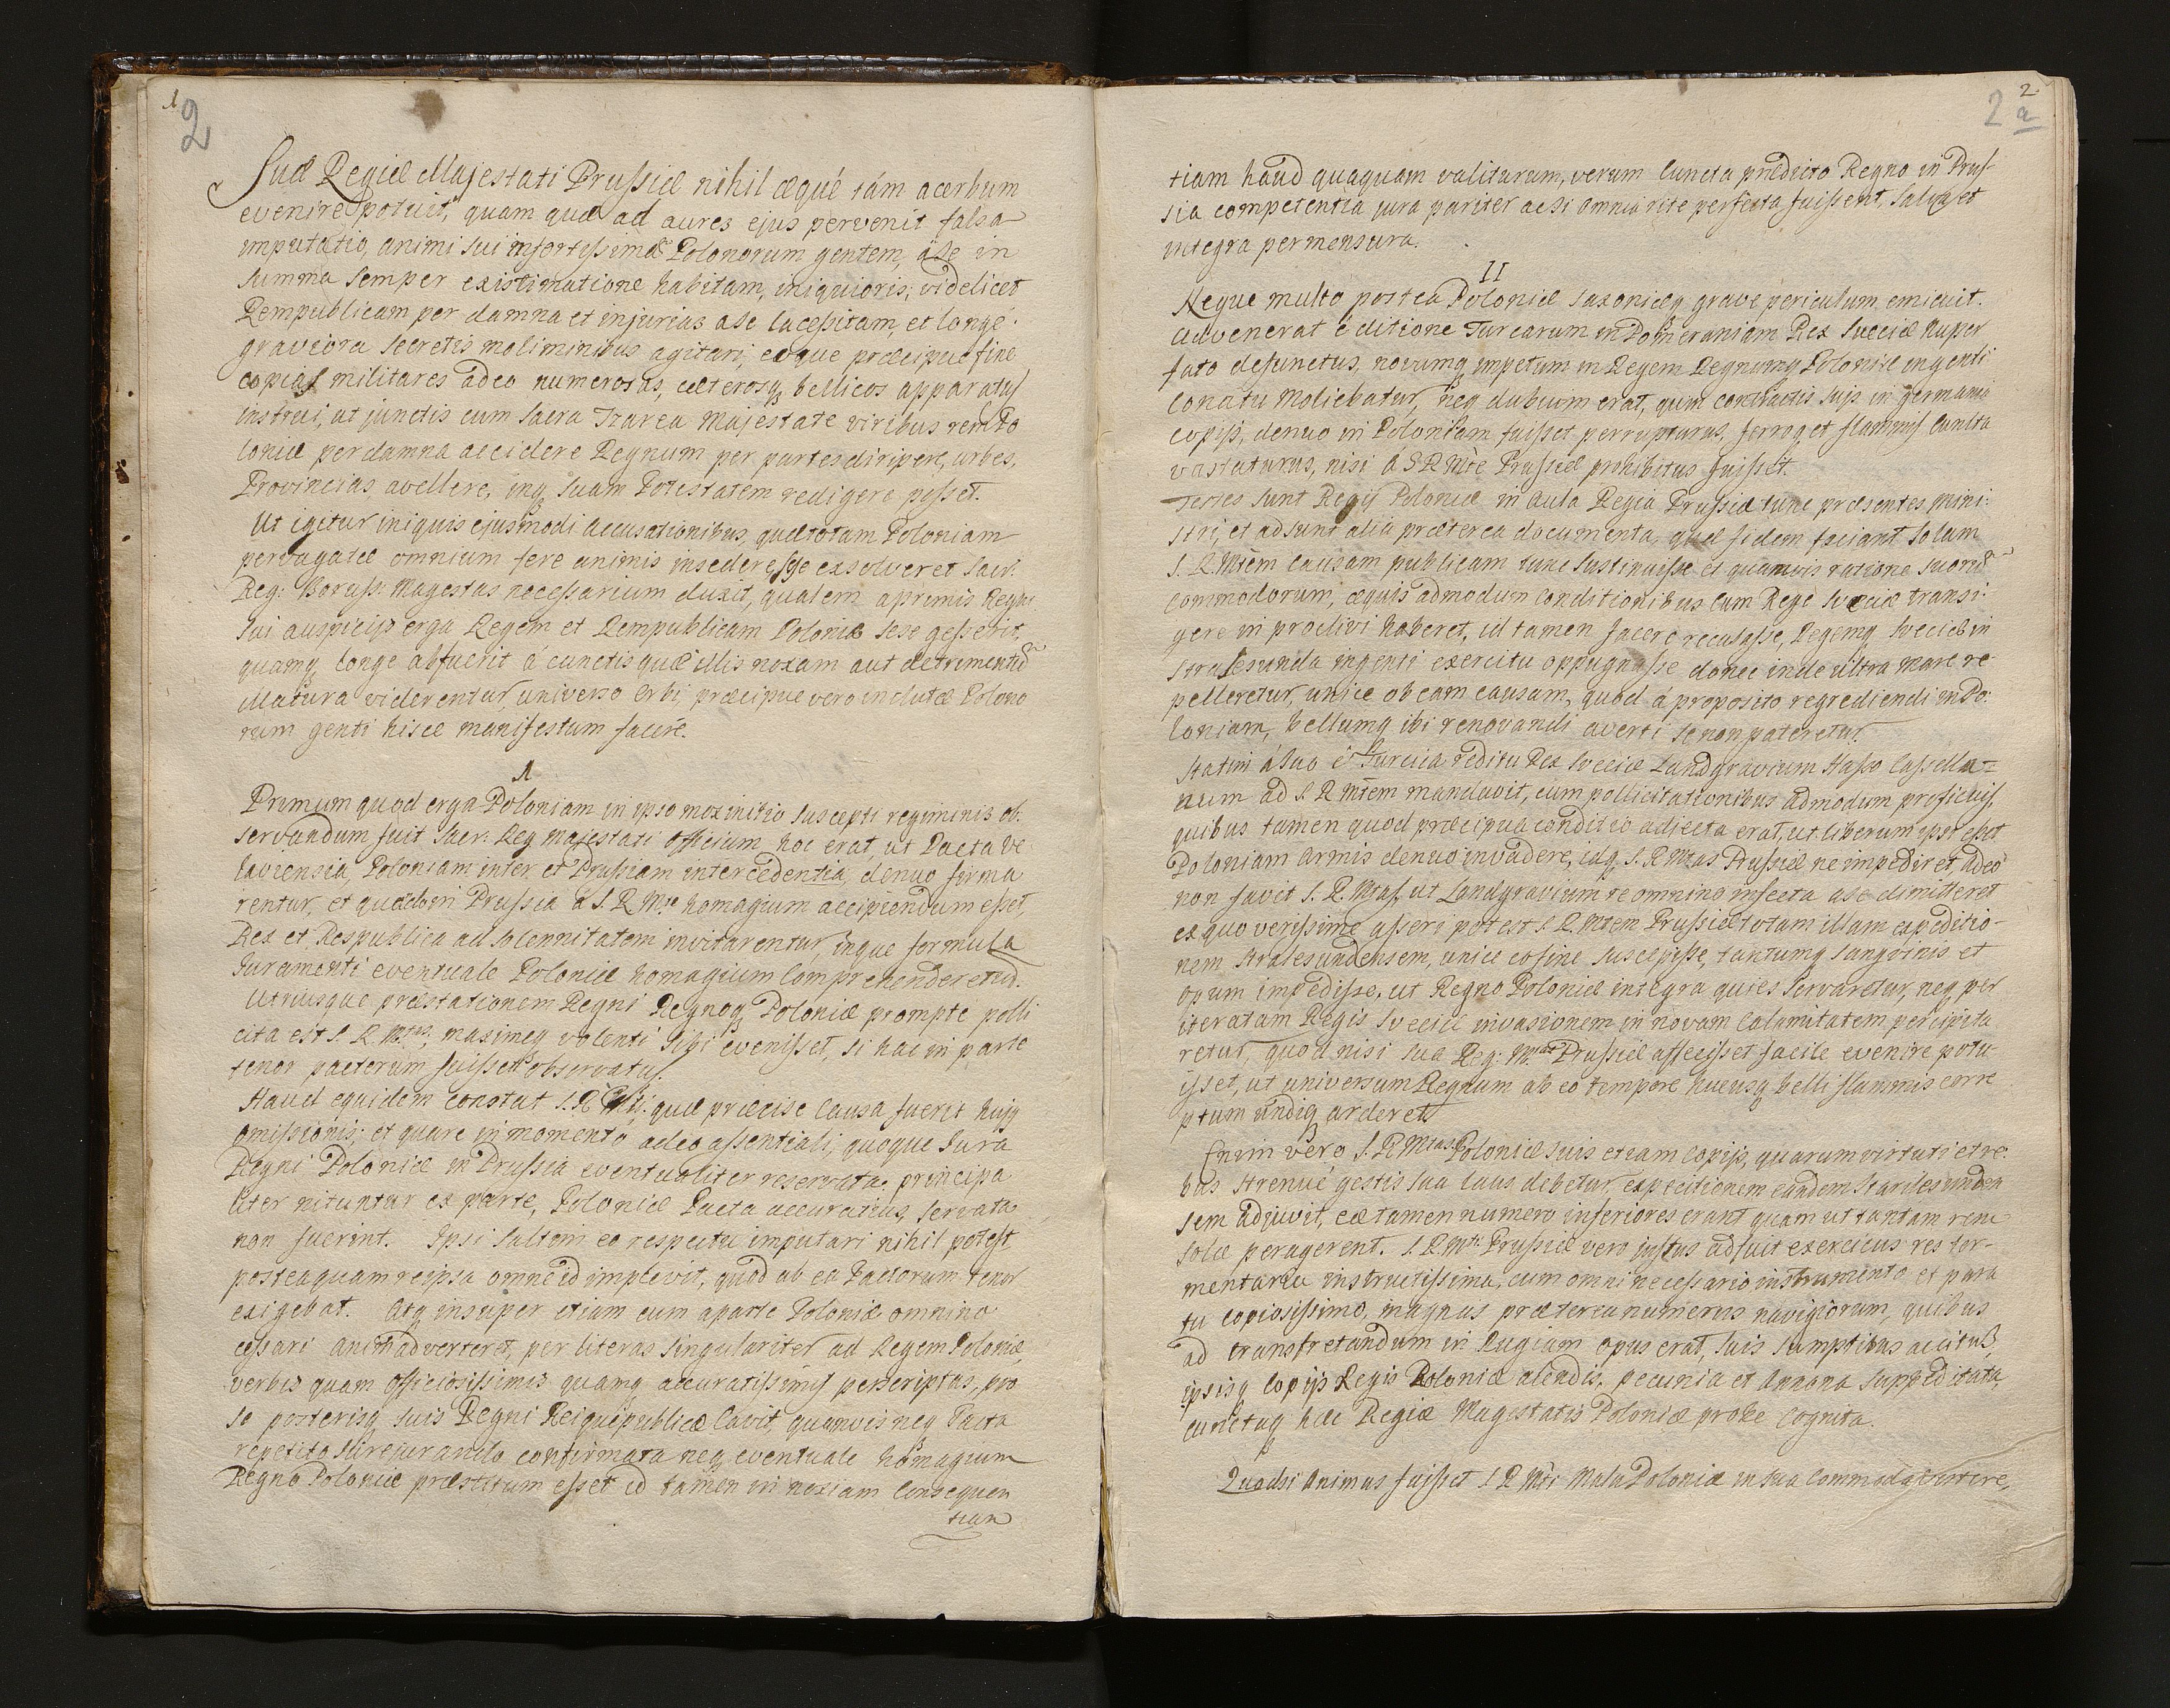 1
2
Suæ Regiæ Majestati Prussiæ nihil æqué tám acerbum
evenire potuit, quam quæ ad aures ejus pervenit falsa
imputatio, animi sui infortissimã Polonorum gentem, áse in
summa semper existimatione habitam, iniquioris; videlicet
Rempublicam per damna et injurias ase lacessitam, et longé
graviora secretis moliminibus agitari, eoque præcipue fine
copias militares adeo numerosas, cæterosq bellicos apparatus
instrui, ut junctis cum Sacra Tzarea Majestate viribus rem Po
loniæ per damna accidere Regnum per partes diripere, urbes,
Provincias avellere, inq suam Potestatem redigere posset.
Ut igitur iniquis ejusmodi accusationibus, quæ totam Poloniam
pervagatæ omnium fere animis insedere, sese exsolveret Sacr.
Reg: Boruss: Magestas necessarium duxit, qualem a primis Regni
sui auspicijs erga Regem et Rempublicam Poloniæ sese gesserit,
quamq longe abfuerit á cunctis quæ illis noxam aut detrimentũ
illatura viderentur, universo orbi, præcipue vero inclutæ Polono
rum genti hisce manifestum facere.
1
Primum quod erga Poloniam in ipso mox initio suscepti regiminis ob.
servandum fuit Sacr: Reg Majestati officium hoc erat, ut Pacta Ve
laviensia, Poloniam inter et Prussiam intercedentia, denuo firma
rentur, et quod in Prussia á S. R Mte homagium accipiendum esset,
Rex et Respublica ad solennitatem invitarentur, inque formula
Juramenti eventuale Poloniæ homagium comprehenderetur.
Utriusque præstationem Regni Regnoq Poloniæ prompté polli
cita est S. R. Mtas, maximeq volenti sibi evenisset, si hac in parte
tenor pactorum fuisset observatus.
Haud equidem constat S. R. Mti: quæ præcise causa fuerit hujq
omissionis; et quare in momento adeo assentiali, quoque Jura
Regni Poloniæ in Prussia eventualiter reservata principa
liter nituntur ex parte, Poloniæ Pacta accuratius, servata
non fuerint. Ipsi saltem eo respectu imputari nihil potest
posteaquam reipsa omne id implevit, quod ab ea Pactorum tenor
exigebat. Atq insuper etiam cum aparte Poloniæ omnino
cessari animadverteret, per literas singulariter ad Regem Poloniæ,
verbis quam officiosissimis quamq accuratissimis perscriptas, pro
se posterisq suis Regni Reique publicæ cavit, quamvis neq Pacta
repetito Jurejurando confirmata neq eventuale homagium
Regno Poloniæ præstitum esset id tamen in noxiam consequen
tiam
2
2 a
tiam haud quaquam valiturum, verum cuncta prædicto Regno in Prus-
sia competentia jura pariter acsi omnia rite perfecta fuissent, salva et
integra permensura.
II
Neque multo postea Poloniæ Saxoniæq grave periculum emicuit.
advenerat é ditione Turcarum in Pomeraniam Rex Sueciæ nuper
fato defunctus, novumq impetum in Regem Regnumq Poloniæ ingenti
conatu moliebatur, neq dubium erat, quin contractis suis in germania
copijs, denuo in Poloniam fuisset perrupturus, ferroq et flammis cuncta
vastaturus, nisi á S R Mte Prussiæ prohibitus fuisset.
Testes sunt Regij Poloniæ in aula Regia Prussiæ tunc præsentes mini:
stri, et adsunt alia præterea documenta, quæ fidem faciant solam
S. R. Mtem causam publicam tunc sustinuisse et quamvis ratione suorũ
commodorum, æquis admodum conditionibus cum Rege Sveciæ transi:
gere in proclivi haberet, id tamen facere recusasse, Regemq Sveciæ in
Stralesunda ingenti exercitu oppugnasse donec inde ultra mare re
pelleretur, unice ob eam causam, quod á proposito regrediendi in Po:
loniam, bellumq ibi renovandi averti se non pateretur.
Statim á suo é Turcica reditu Rex Sveciæ Landgravium Hasso Cassella=
num ad S. R Mtem mandavit, cum pollicitationibus admodum proficuis,
quibus tamen quod præcipua conditio adjecta erat, ut liberum ipsi esset
Poloniam armis denuo invadere, idq S. R Mtas Prussiæ ne impediret, adeo
non favit S. R. Mtas, ut Landgravium re omnino infecta ase dimitteret
ex quo verissime asseri potest S. R. Mtem Prussiæ totam illam expeditio-
nem Stralesundensem, unice eo fine suscepisse, tantumq sangvinis et
opum impedisse, ut Regno Poloniæ integra quies servaretur, neq per
iteratam Regis Sveciæ invasionem in novam calamitatem percipita
retur, quod nisi sua Reg: Mtas Prussiæ affecisset facile evenire potu-
isset, ut universum Regnum ab eo tempore hucusq belli flammis corre
ptum undiq arderet.
Enim vero S. R Mtas Poloniæ suis etiam copijs, quarum virtuti et re:
bus strenué gestis sua laus debetur, expeditionem eandem Starilesunden
sem adjuvit, eæ tamen numero inferiores erant quam ut tantam rem
solæ peragerent. S. R. Mti Prussiæ vero justus adfuit exercicus res tor-
mentaria instructissima, cum omni necessario instrumento et para
tu copiosissimo, magnus præterea numerus navigiorum, quibus
ad transfretandum in Rugiam opus erat, suis sumptibus acitus,
ipsisq copijs Regis Poloniæ alendis, pecunia et annona suppeditata,
cunctaq hæc Regiæ Magestatis Poloniæ probe cognita.
Quodsi animus fuisset S R Mti mala Poloniæ in sua commoda vertere,